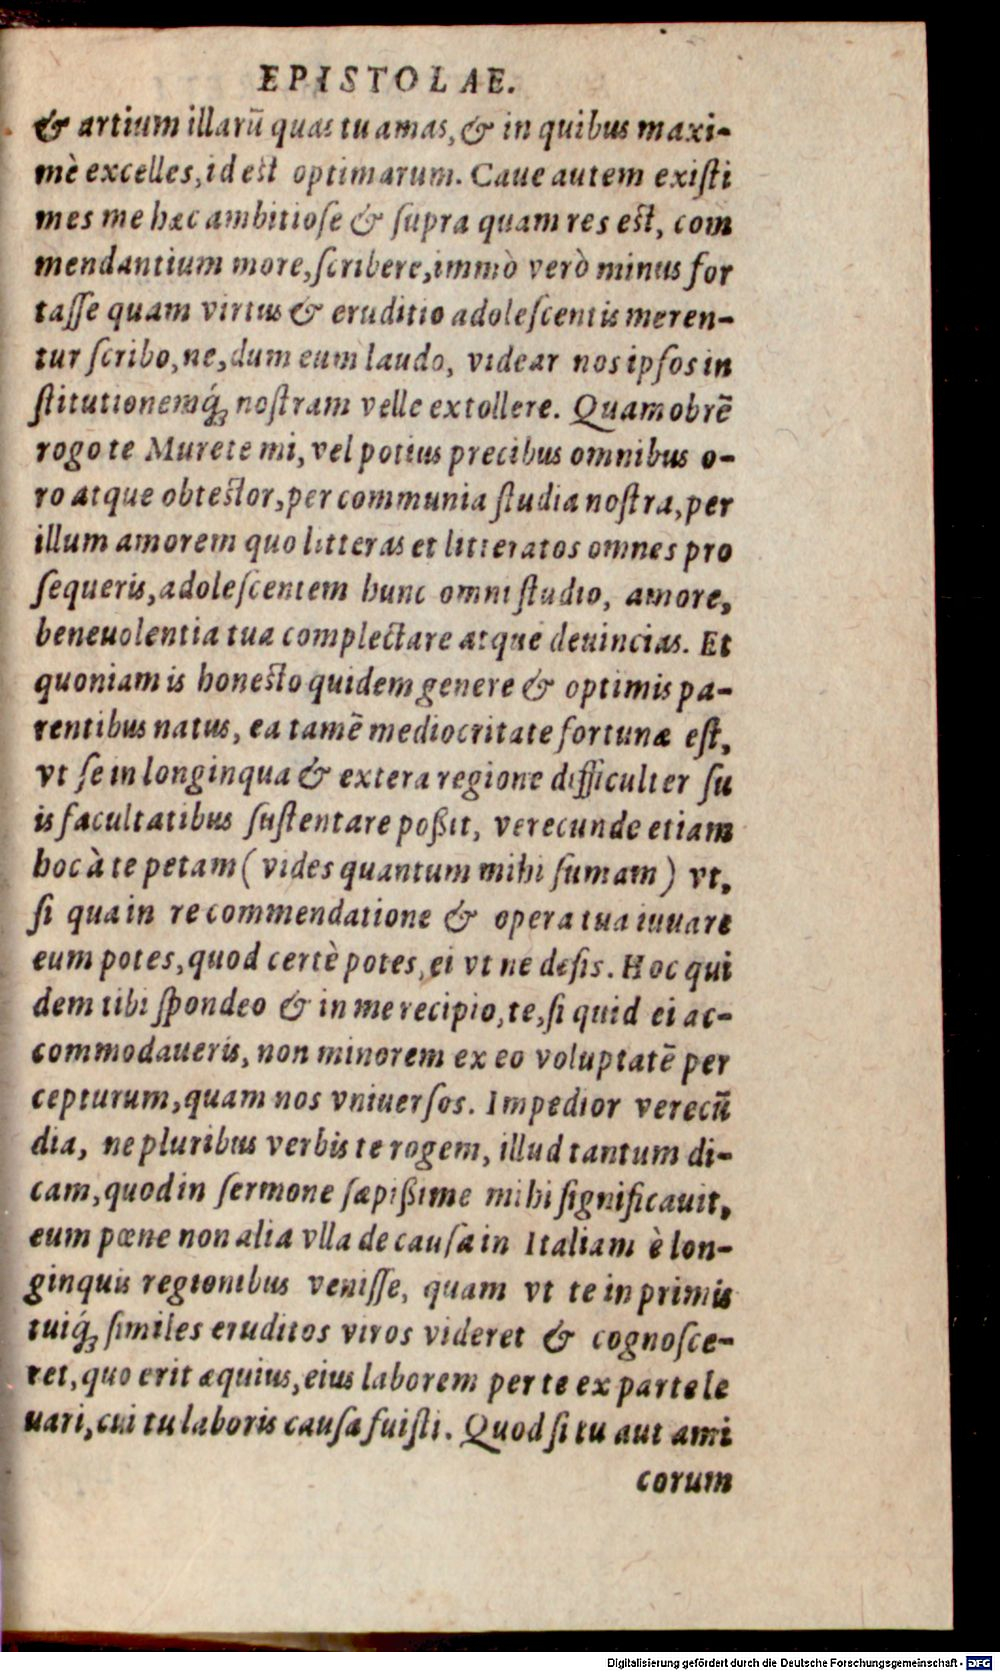 EPISTOLAE.
& artium illarū quas tu amas, & in quibus maxi-
mè excelles, id est optimarum. Caue autem existi
mes me hæc ambitiose & supra quam res est, com
mendantium more, scribere, immò verò minus for
tasse quam virtus & eruditio adolescentis meren-
tur scribo, ne, dum eum laudo, videar nos ipsos in
stitutionemq́ꝫ nostram velle extollere. Quamobrē
rogo te Murete mi, vel potius precibus omnibus o-
ro atque obtestor, per communia studia nostra, per
illum amorem quo litteras et litteratos omnes pro
sequeris, adolescentem hunc omni studio, amore,
beneuolentia tua complectare atque deuincias. Et
quoniam is honesto quidem genere & optimis pa-
rentibus natus, ea tamē mediocritate fortunæ est,
vt se in longinqua & extera regione difficulter su
is facultatibus sustentare poßit, verecunde etiam
hoc à te petam (vides quantum mihi sumam) vt,
si qua in re commendatione & opera tua iuuare
eum potes, quod certè potes, ei vt ne desis. Hoc qui
dem tibi spondeo & in me recipio, te, si quid ei ac-
commodaueris, non minorem ex eo voluptatē per
cepturum, quam nos vniuersos. Impedior verecū
dia, ne pluribus verbis te rogem, illud tantum di-
cam, quod in sermone sæpißime mihi significauit,
eum pœne non alia vlla de causa in Italiam è lon-
ginquis regionibus venisse, quam vt te in primis
tuiq́ꝫ similes eruditos viros videret & cognosce-
ret, quo erit æquius, eius laborem per te ex parte le
uari, cui tu laboris causa fuisti. Quod si tu aut ami
corum
Digitalisierung gefördert durch die Deutsche Forschungsgemeinschaft - DFG